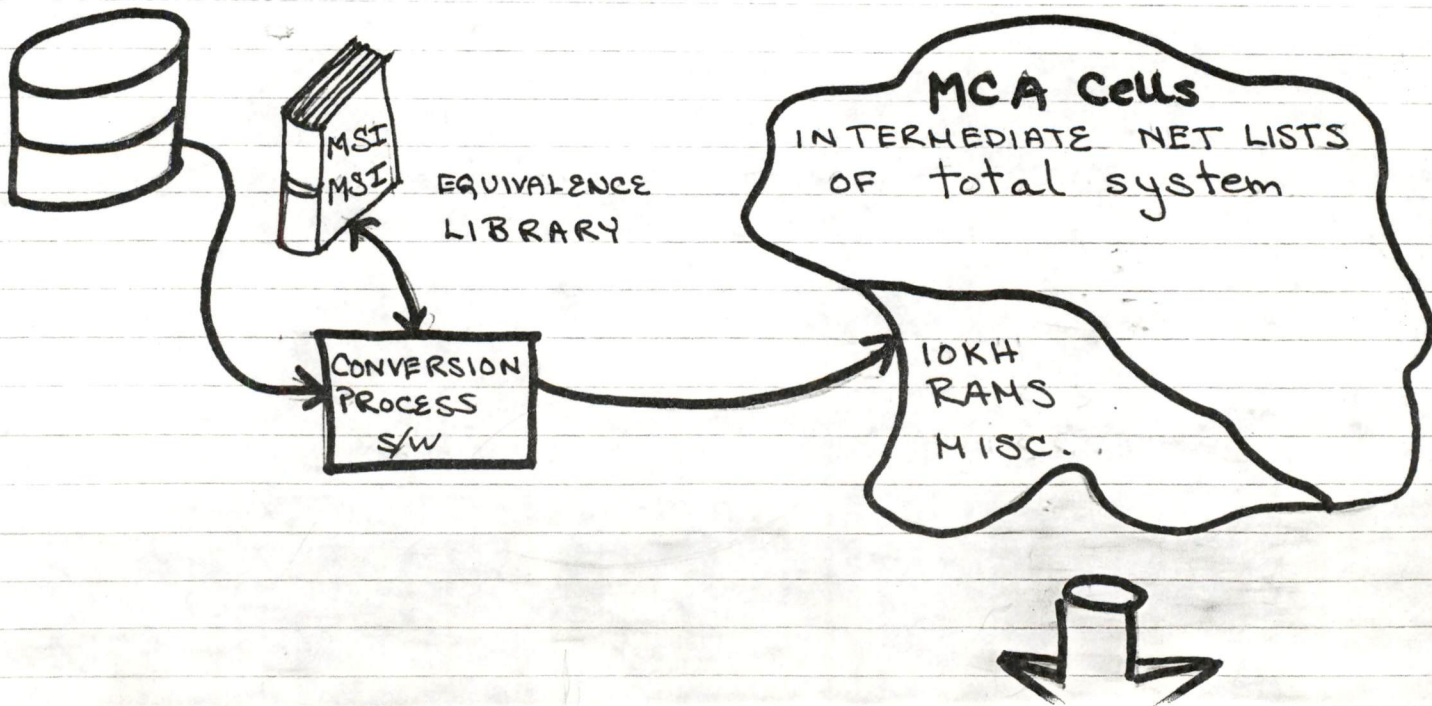 MSI
MSI
EQUIVALENCE
LIBRARY
CONVERSION
PROCESS
S/W
MCA Cells
INTERMEDIATE NET LISTS
OF total system
10KH
RAMS
MISC.